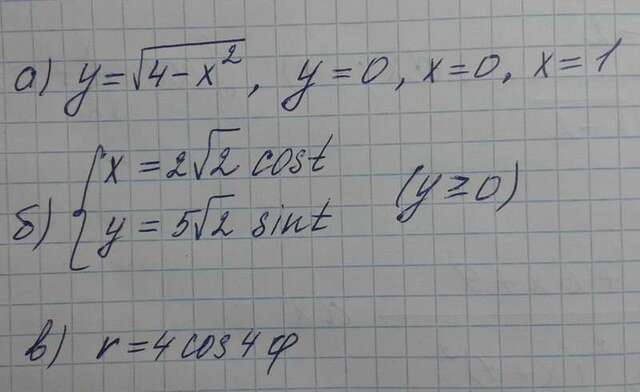 а) y = √(4 - x²), y = 0, x = 0, x = 1
б) { x = 2√2 cost
y = 5√2 sint (y ≥ 0)
в) r = 4 cos 4φ